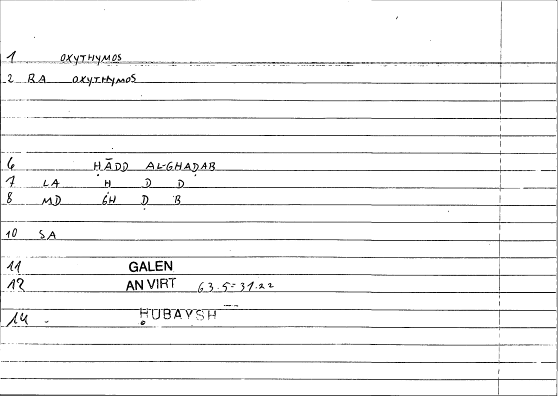 1 OXYTHYMOS
2 RA OXYTHYMOS
6 ḤĀDD AL-GHAḌAB
7 LA Ḥ D D
8 MD GH Ḍ B
10 SA
11 GALEN
12 AN VIRT 63.5=31.22
14 ḤUBAYSH